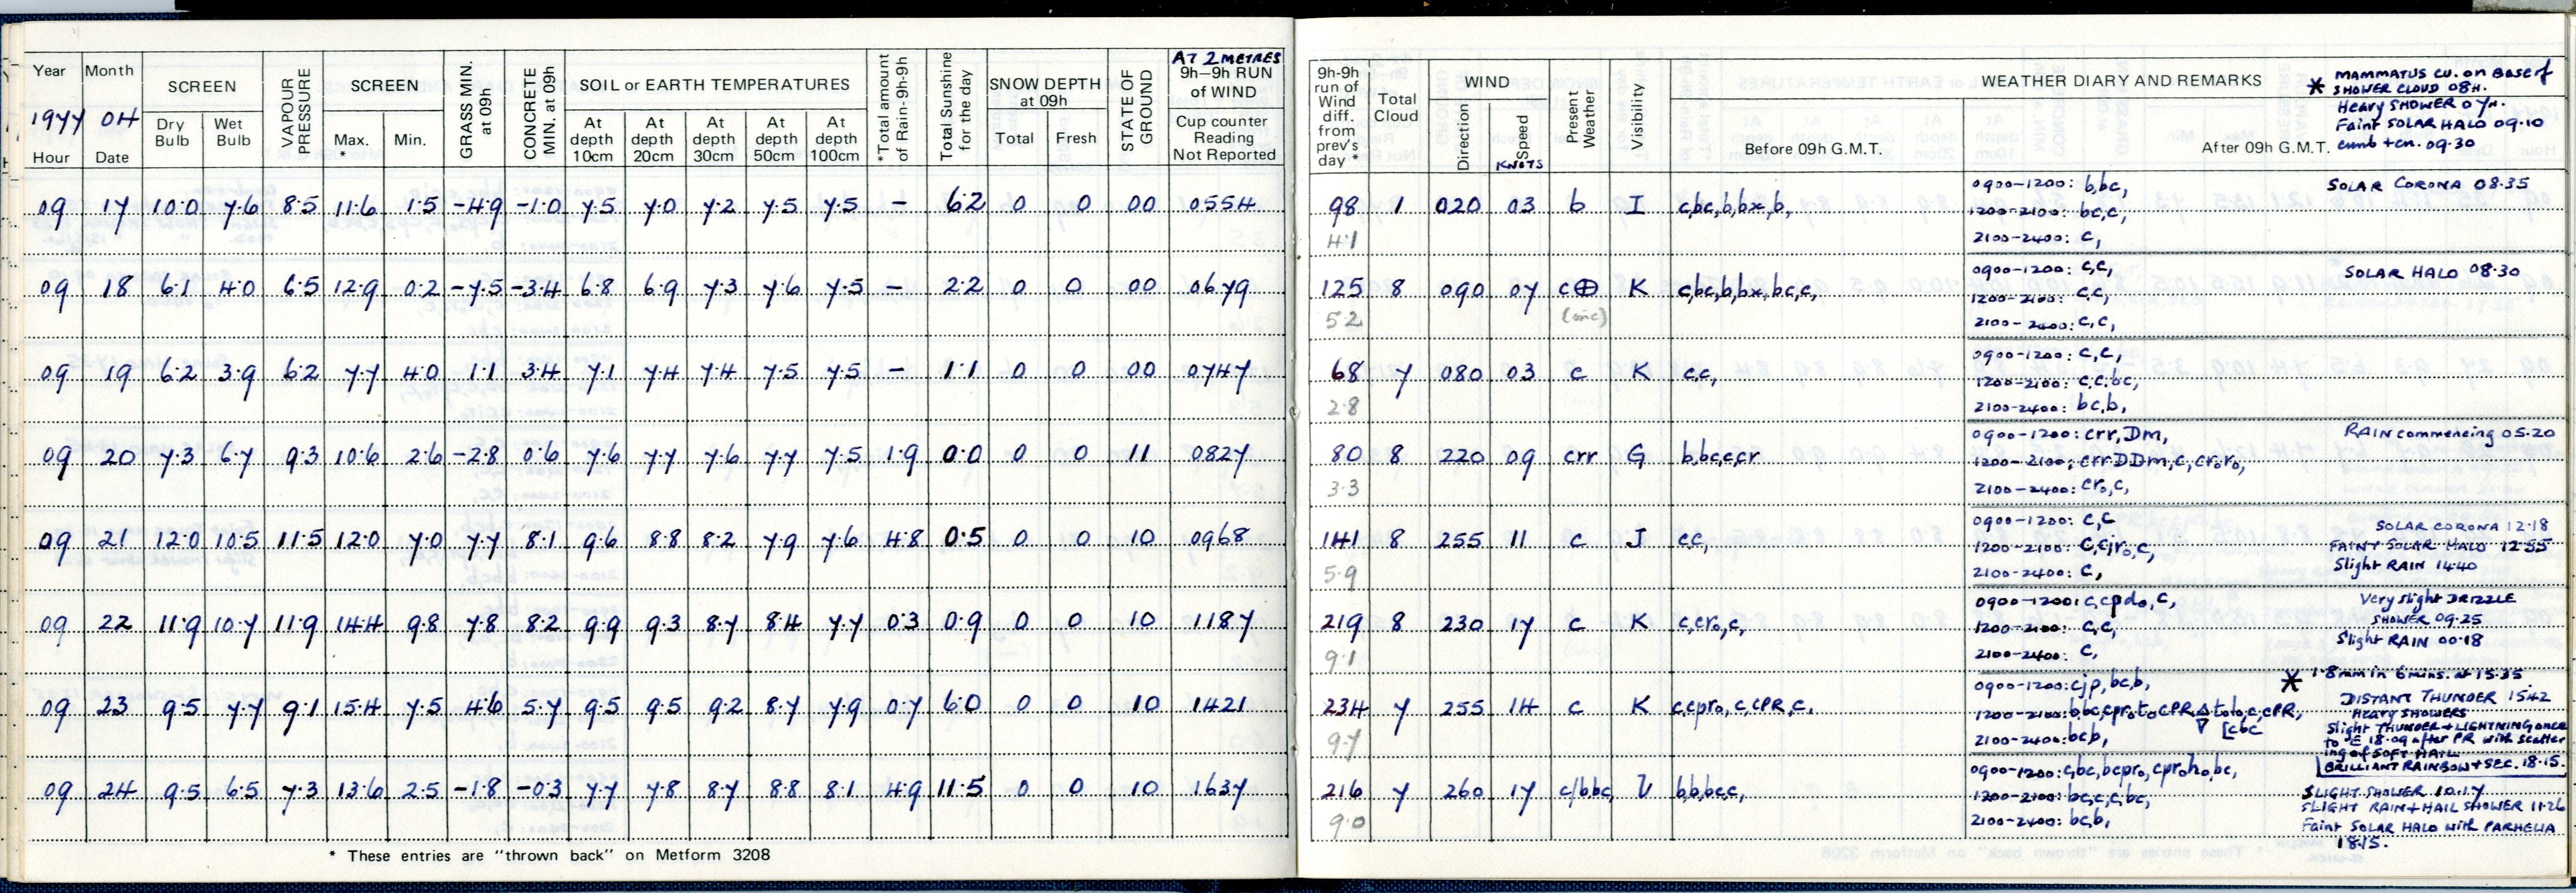 Year Month SCREEN VAPOUR PRESSURE SCREEN GRASS MIN. at 09h CONCRETE MIN. at 09h SOIL or EARTH TEMPERATURES *Total amount of Rain-9h-9h Total Sunshine for the day SNOW DEPTH at 09h STATE OF GROUND AT 2 METRES 9h–9h RUN of WIND
1977 04 Dry Bulb Wet Bulb Max. * Min. At depth 10cm At depth 20cm At depth 30cm At depth 50cm At depth 100cm Total Fresh Cup counter Reading Not Reported
Hour Date
09 17 10.0 7.6 8.5 11.6 1.5 -4.9 -1.0 7.5 7.0 7.2 7.5 7.5 – 6.2 0 0 00 0554
09 18 6.1 4.0 6.5 12.9 0.2 -7.5 -3.4 6.8 6.9 7.3 7.6 7.5 – 2.2 0 0 00 0679
09 19 6.2 3.9 6.2 7.7 4.0 1.1 3.4 7.1 7.4 7.4 7.5 7.5 – 1.1 0 0 00 0747
09 20 7.3 6.7 9.3 10.6 2.6 -2.8 0.6 7.6 7.7 7.6 7.7 7.5 1.9 0.0 0 0 11 0827
09 21 12.0 10.5 11.5 12.0 7.0 7.7 8.1 9.6 8.8 8.2 7.9 7.6 4.8 0.5 0 0 10 0968
09 22 11.9 10.7 11.9 14.4 9.8 7.8 8.2 9.9 9.3 8.7 8.4 7.7 0.3 0.9 0 0 10 1187
09 23 9.5 7.7 9.1 15.4 7.5 4.6 5.7 9.5 9.5 9.2 8.7 7.9 0.7 6.0 0 0 10 1421
09 24 9.5 6.5 7.3 13.6 2.5 -1.8 -0.3 7.7 7.8 8.7 8.8 8.1 4.9 11.5 0 0 10 1637
* These entries are "thrown back" on Metform 3208
9h-9h run of Wind diff. from prev's day * Total Cloud WIND Direction Speed KNOTS Present Weather Visibility WEATHER DIARY AND REMARKS
Before 09h G.M.T. After 09h G.M.T.
* MAMMATUS CU. on Base of
SHOWER CLOUD 08H.
Heavy SHOWER 07H.
Faint SOLAR HALO 09.10
cumb + cn. 09.30
98 1 020 03 b I c,bc,b,bx,b, 0900-1200: b,bc, SOLAR CORONA 08.35
1200-2100: bc,c,
4.1 2100-2400: c,
125 8 090 07 c⊕ K c,bc,b,bx,bc,c, 0900-1200: c,c, SOLAR HALO 08.30
1200-2100: c,c,
5.2 2100-2400: c,c,
68 7 080 03 c K c,c, 0900-1200: c,c,
1200-2100: c,c,bc,
2.8 2100-2400: bc,b,
80 8 220 09 crr G b,bc,c,cr 0900-1200: crr,Dm, RAIN commencing 05.20
1200-2100: crrDDm,c,cr₀r₀,
3.3 2100-2400: cr₀,c,
141 8 255 11 c J c,c, 0900-1200: c,c SOLAR CORONA 12.18
1200-2100: c,cjr₀,c, FAINT SOLAR HALO 12.55
5.9 2100-2400: c, Slight RAIN 14.40
219 8 230 17 c K c,cr₀,c, 0900-1200: c,cpd₀,c, Very slight DRIZZLE
SHOWER 09.25
1200-2100: c,c,
Slight RAIN 00.18
9.1 2100-2400: c,
234 7 255 14 c K c,cpr₀,c,cPR,c, 0900-1200: cjp,bc,b, * 1.8mm in 6 mins. at 15.35
DISTANT THUNDER 15.42
1200-2100: b,bc,cpr₀t₀cPR,t₀l₀,c,cPR, [cbc HEAVY SHOWERS
9.7 2100-2400: bcb, Slight THUNDER + LIGHTNING once
to E 18.09 after PR with scatter
ing of SOFT HAIL
BRILLIANT RAINBOW + SEC. 18.15.
216 7 260 17 c/bbc V b,b,bc,c, 0900-1200: c,bc,bcpr₀,cpr₀h₀,bc, SLIGHT SHOWER 10.17
1200-2100: bc,c,c,bc, SLIGHT RAIN + HAIL SHOWER 11.26
9.0 2100-2400: bc,b, Faint SOLAR HALO with PARHELIA
18.15.